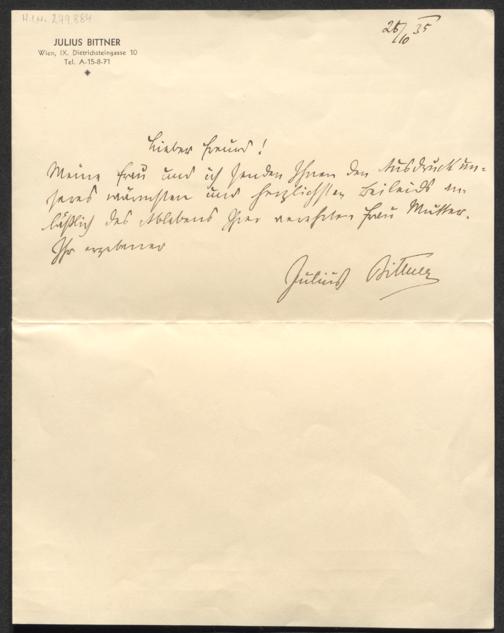 H.I.N. 299.884
26/10 35
JULIUS BITTNER
Wien, IX. Dietrichsteingasse 10
Tel. A-15-8-71
Lieber Freund!
Meine Frau und ich senden Ihnen den Ausdruck un-
seres wärmsten und herzlichsten Beileids an-
läßlich des Ablebens Ihrer verehrten Frau Mutter.
Ihr ergebener
Julius Bittner